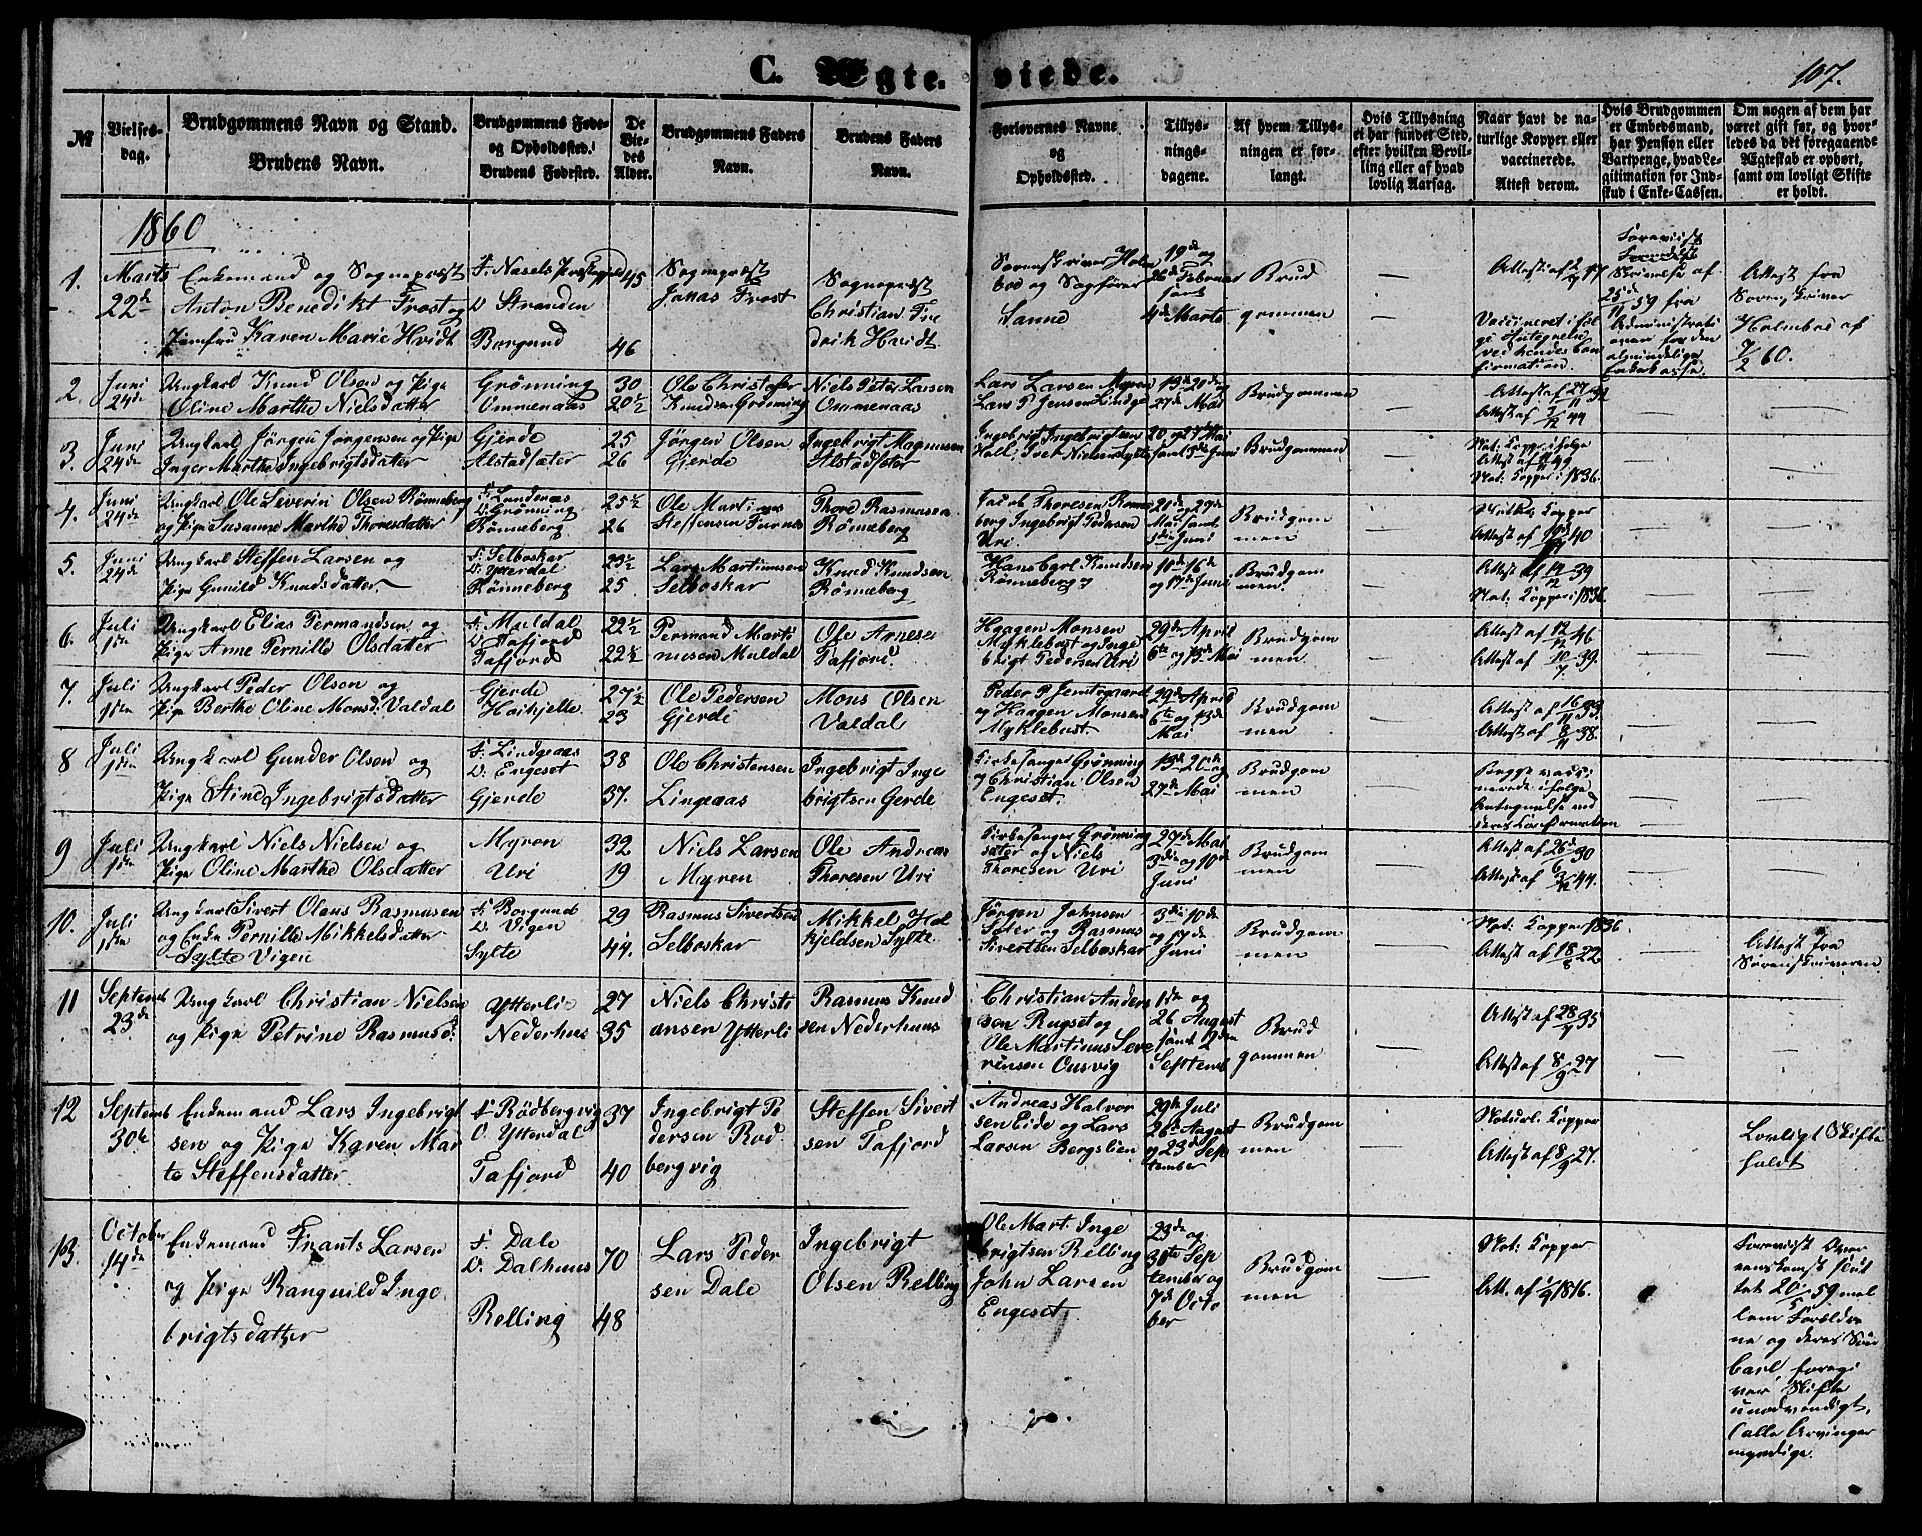 C. Ægteviede.
107.
№
Vielsesdag.
Brudgommens Navn og Stand.
Brudens Navn.
Brudgommens Føde- og Opholdssted.
Brudens Fødested.
De Viedes Alder.
Brudgommens Faders Navn.
Brudens Faders Navn.
Forlovernes Navne og Opholdssted.
Tillysningsdagene.
Af hvem Tillysningen er forlangt.
Hvis Tillysning ei har fundet Sted, efter hvilken Bevilling eller af hvad lovlig Aarsag.
Naar havt de naturlige Kopper eller vaccinerede. Attest derom.
Hvis Brudgommen er Embedsmand, har Pension eller Vartpenge, hvad Legitimation for Indskud i Enke-Cassen.
Om nogen af dem har været gift før, og hvorledes da det foregaaende Ægteskab er ophørt, samt om lovligt Skifte er holdt.
1860
1. Marts 22de
Enkemand og Sognepræst
Anton Benedikt Frost og
Jomfru Karen Marie Hvidt
F. Næsets Præstegjeld
O. Stranden
Borgund
45
46
Sognepræst
Jonas Frost
Sognepræst
Christian Fre
derik Hvidt
Sorenskriver Holm
boe og Sagfører
Sanne
19de og
26de Februar
samt
4de Marts
Brud
gommen
Attest fra
Sorenskriver
Holmboe af
7/2 60.
2. Juni 24de
Ungkarl Knud Olsen og Pige
Oline Marthe Nielsdatter
Grønning
Ommenaas
30
20½
Ole Christofer
Knudsen Grønning
Niels Peter Larsen
Ommenaas
Lars Larsen Myren
Lars P Jensen Linge
13de 20de og
27de Mai
Brudgommen
3. Juni 24de
Ungkarl Jørgen Jørgensen og Pige
Inger Marthe Ingebrigtsdatter
Gjerde
Alstadsæter
25
26
Jørgen Olsen
Gjerde
Ingebrigt Magnussen
Alstadsæter
20 og 27de Mai
samt 3de Juni
Brudgommen
Nat. Kopper i 1836.
4. Juni 24de
Ungkarl Ole Severin Olsen Rønneberg
og Pige Susanne Marthe Thoresdatter
O. Grønning
Rønneberg
25½
26
Ole Martinus
Steffensen Furnes
Thore Rasmussen
Rønneberg
Jacob Thoresen Rønne
berg Ingebrigt Pedersen
Uri.
Brudgom
men
5. Juni 24de
Ungkarl Steffen Larsen og
Pige Gunild Knudsdatter
F. Selboskar
O. Ytterdal
Rønneberg
23½
25
Lars Martinussen
Selboskar
Knud Knudsen
Rønneberg
Hans Carl Knudsen
Rønneberg
og 17de Juni
Brudgom
men.
Attest af 14/12 39
Nat. Kopper i 1836.
6. Juli 1ste
Ungkarl Elias Permandsen og
Pige Anne Pernille Olsdatter
F. Muldal
O. Tafjord
Tafjord
22½
22½
Permand Marti
nusen Muldal
Ole Arnesen
Tafjord.
Haagen Monsen
Myklebust og Inge
brigt Pedersen Uri
29de April
6te og 13de Mai
Brudgom
men.
Attest af 12/12 46
Attest af 10/7 39.
7. Juli 1ste
Ungkarl Peder Olsen og
Pige Berthe Oline Monsd. Valdal
Gjerde
Hoikjelle
27½
23
Ole Pedersen
Gjerde
Mons Olsen
Valdal
og Haagen Monsen
Myklebust.
29de April
6te og 13de
Mai
Brudgom
men
Attest af 16/11 33.
Attest af 8/11 38.
8 Juli 1ste
Ungkarl Gunder Olsen og
Pige Stine Ingebrigtsdatter
F. Lingeaas
O. Engeset
Gjerde
38
37.
Ole Christensen
Lingeaas
Ingebrigt Inge
brigtsen Gerde
Kirkesanger Grønning
og Christian Olsen
Engeset.
13de 20de og
27de Mai
Brudgom
men
Begge vacci
nerede ifølge
Antegnelse ved
deres Confirmation
9 Juli 1ste
Ungkarl Niels Nielsen og
Pige Oline Marthe Olsdatter
Myren
Uri
32
19
Niels Larsen
Myren
Ole Andreas
Thoresen Uri
Kirkesanger Grønning
sæter og Niels
Thoresen Uri
27de Mai
3die og 10de
Juni
Brudgom
men
10. Juli 1ste
Ungkarl Sivert Olaus Rasmussen
og Enke Pernille Mikkelsdatter
Sylte Vigen
F. Borgund
O. Vigen
Sylte
29
44.
Rasmus Sivertsen
Selboskar
Mikkel
kjeldsen Sylte
Jørgen Johnsen
Sæter og Rasmus
Sivertsen Selboskar
3die 10de
og 17de
Juni
Brudgom
men
Nat. Kopper 1836
Attest af 18/8 22
Attest fra
Sorenskriveren
11 Septemb 23de
Ungkarl Christian Nielsen
og Pige Petrine Rasmusd:
Ytterlie
Nederhuus
27
35
Niels Christi
ansen Ytterli
Rasmus Knud
sen Nederhuus
Christian Anders
sen Rugset og
Ole Martinus Seve
rinsen Ousvig
26 August
Septemb
Brud
gommen
Attest af 28/9 35
Attest af 8/9 27
12 Septemb 30te
Enkemand Lars Ingebrigt
sen og Pige Karen Mar
te Steffensdatter
F. Rødbergvig
O. Ytterdal
Tafjord
37
40
Ingebrigt Pe
dersen Rød
bergvig
Steffen Sivert
sen Tafjord
Andreas Halvor
sen Eide og Lars
Larsen Bergslien
29de Juli
26de August
og 23de Sep
tember
Brudgom
men
Naturl. Kopper
Attest af 8/9 27.
Lovligt Skifte
holdt
13. October 14de
Enkemand Frants Larsen
og Pige Rangnild Inge
brigtsdatter
F. Dale
O. Dalhuus
Relling
70
48
Lars Peder
sen Dale
Ingebrigt
Olsen Relling
Ole Mart. Inge
brigtsen Relling
John Larsen
Engeset
23de og
30te Sep
tember og
7de Octo
ber
Brudgom
men
Nat: Kopper
Att. af 1/9 1816.
Forevist Over
eenskomst slut
tet 20/5 59 mel
lem Forældre
ne og deres
unødvendigt.
(alle Arvinger
myndige.